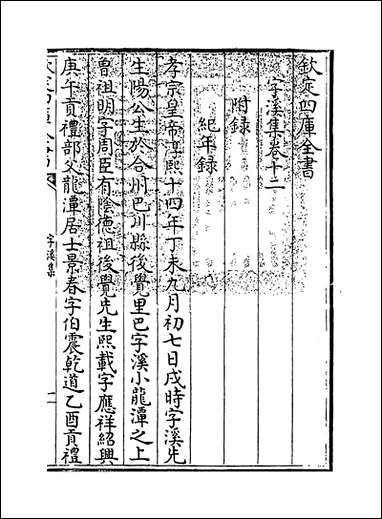 欽定四庫全書
字溪集卷十二
附録
紀年録
孝宗皇帝淳熙十四年丁未九月初七日戌時字溪先
生陽公生於合州巴川縣後覺里巴字溪小龍潭之上
曾祖明字周臣有陰德祖後覺先生熙載字應祥紹興
庚午貢禮部父龍潭居士景春字伯震乾道乙酉貢禮
字溪集